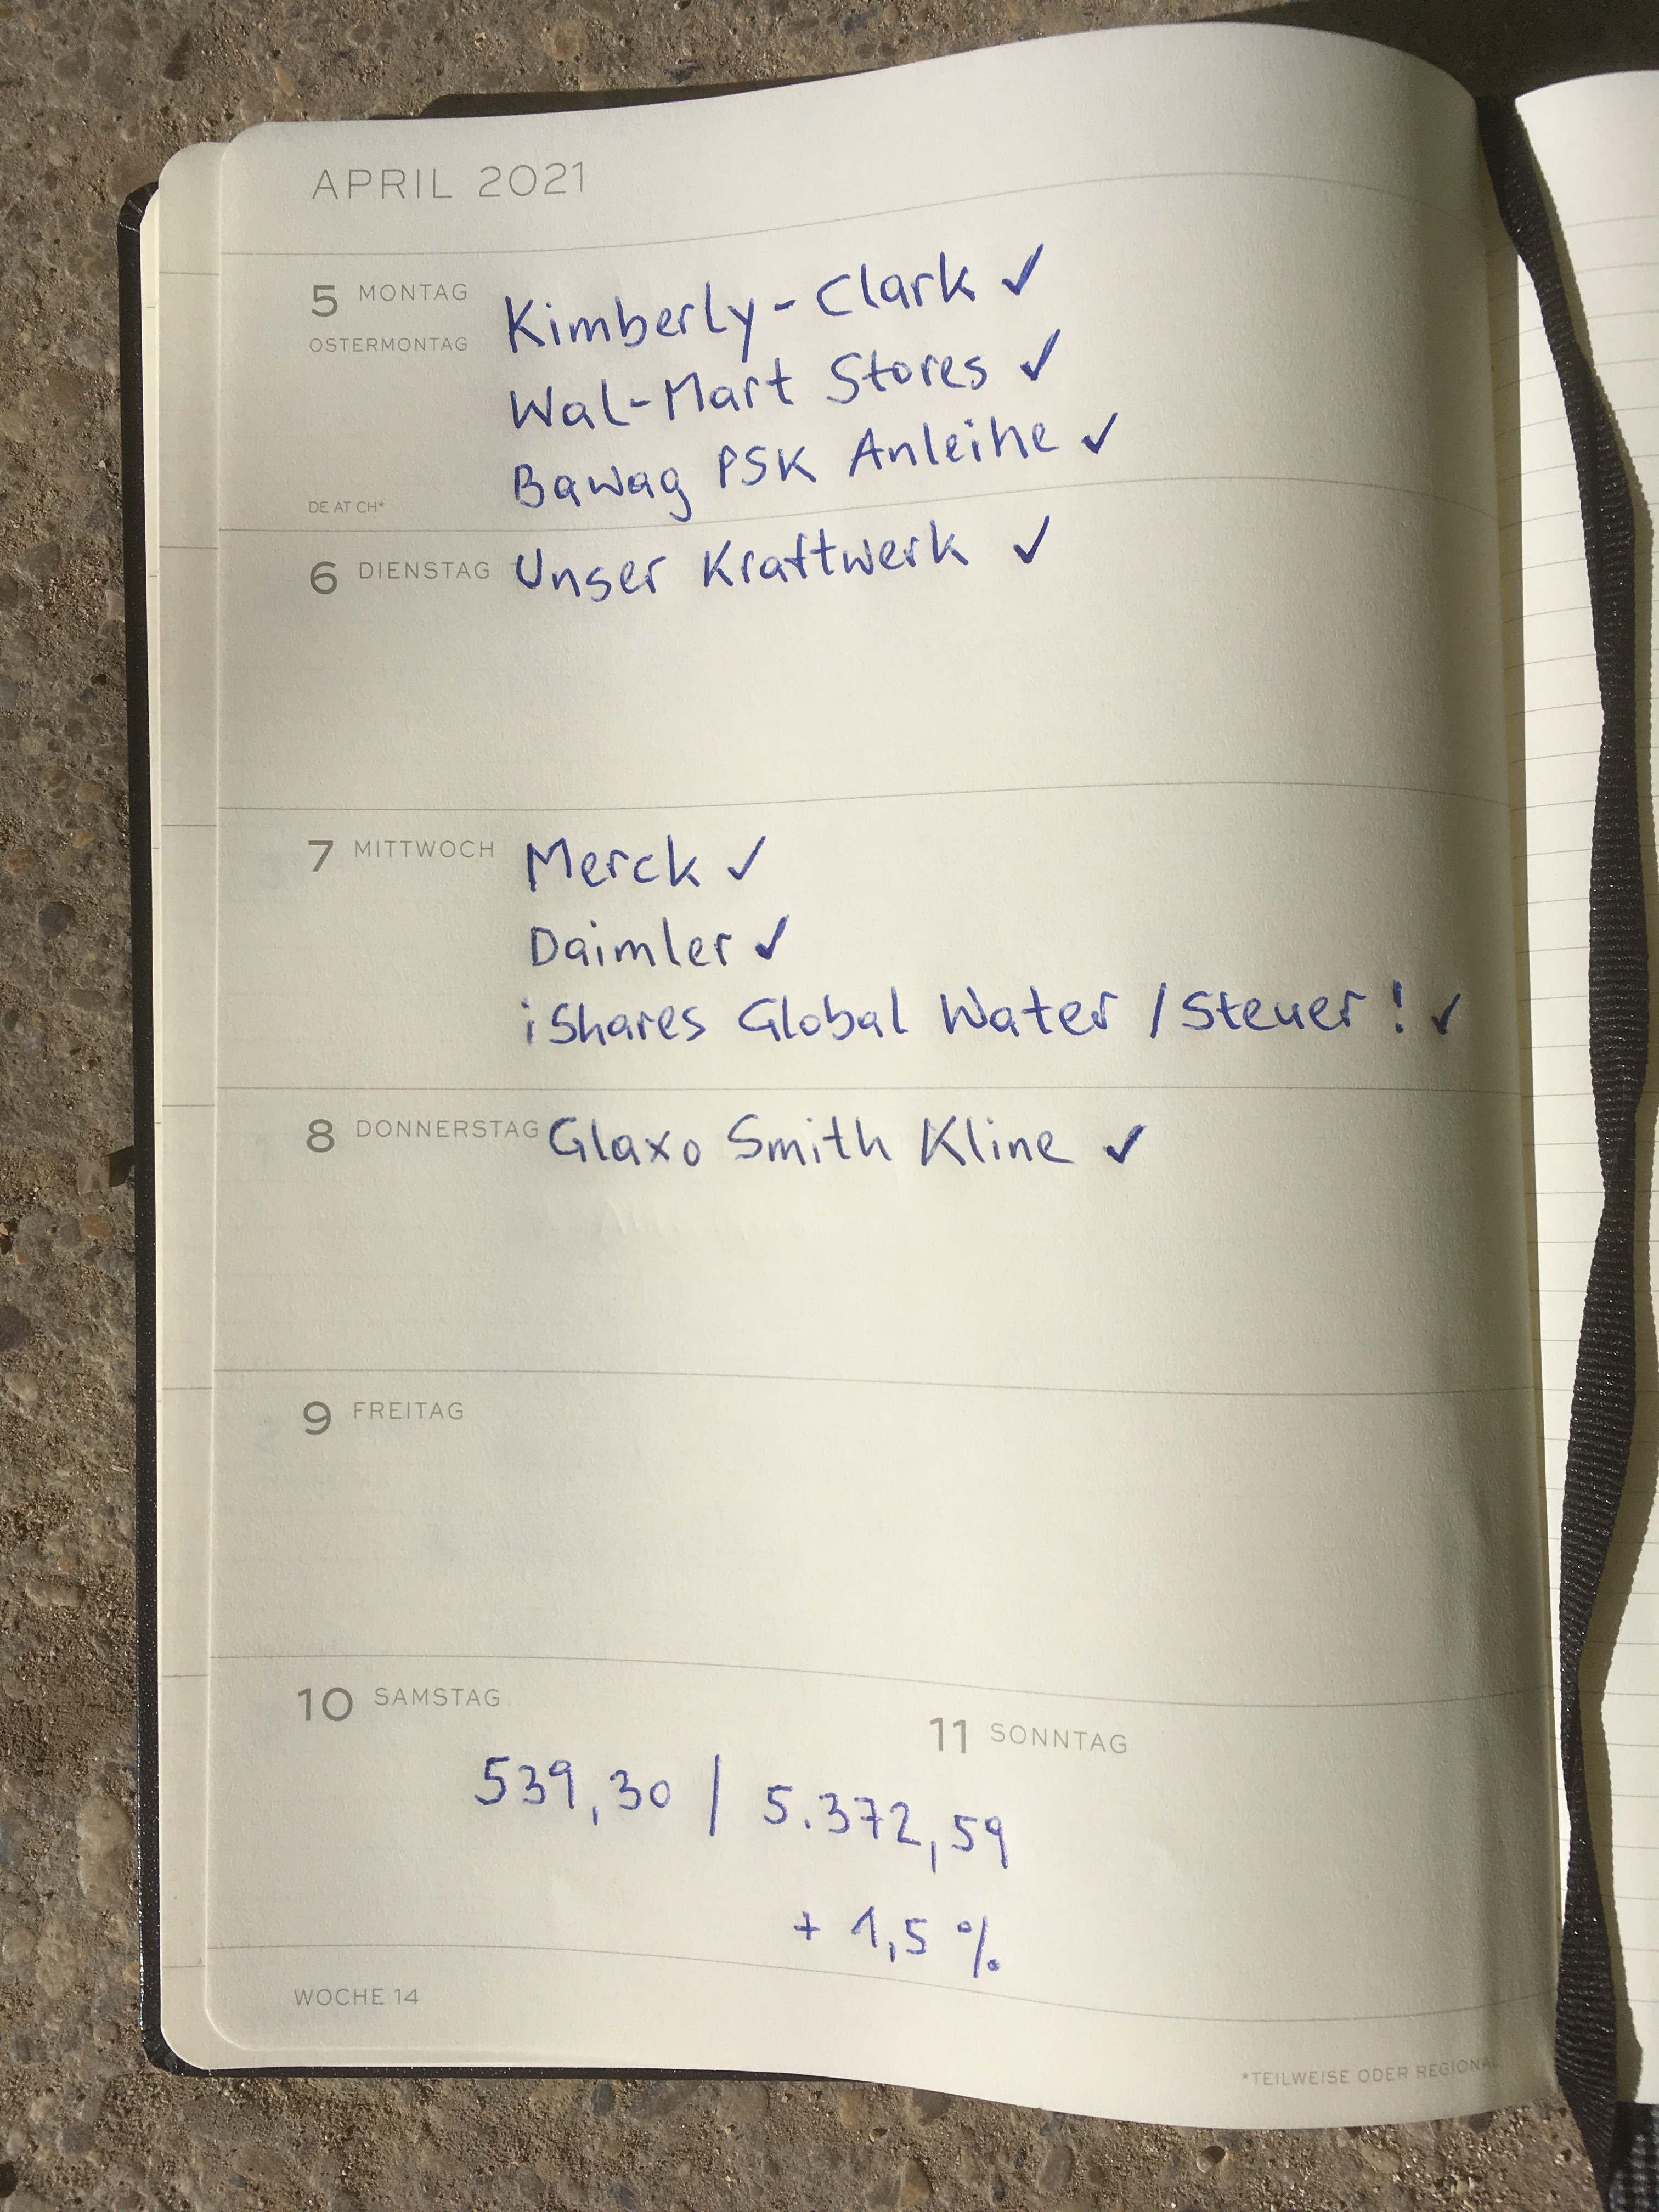 APRIL 2021
5 MONTAG Kimberly-Clark ✓
OSTERMONTAG
Wal-Mart Stores ✓
Bawag PSK Anleihe ✓
DE AT CH*
6 DIENSTAG Unser Kraftwerk ✓
7 MITTWOCH Merck ✓
Daimler ✓
iShares Global Water / Steuer! ✓
8 DONNERSTAG Glaxo Smith Kline ✓
9 FREITAG
10 SAMSTAG
11 SONNTAG
539,30 / 5.372,59
+ 1,5 %
WOCHE 14
*TEILWEISE ODER REGIONAL